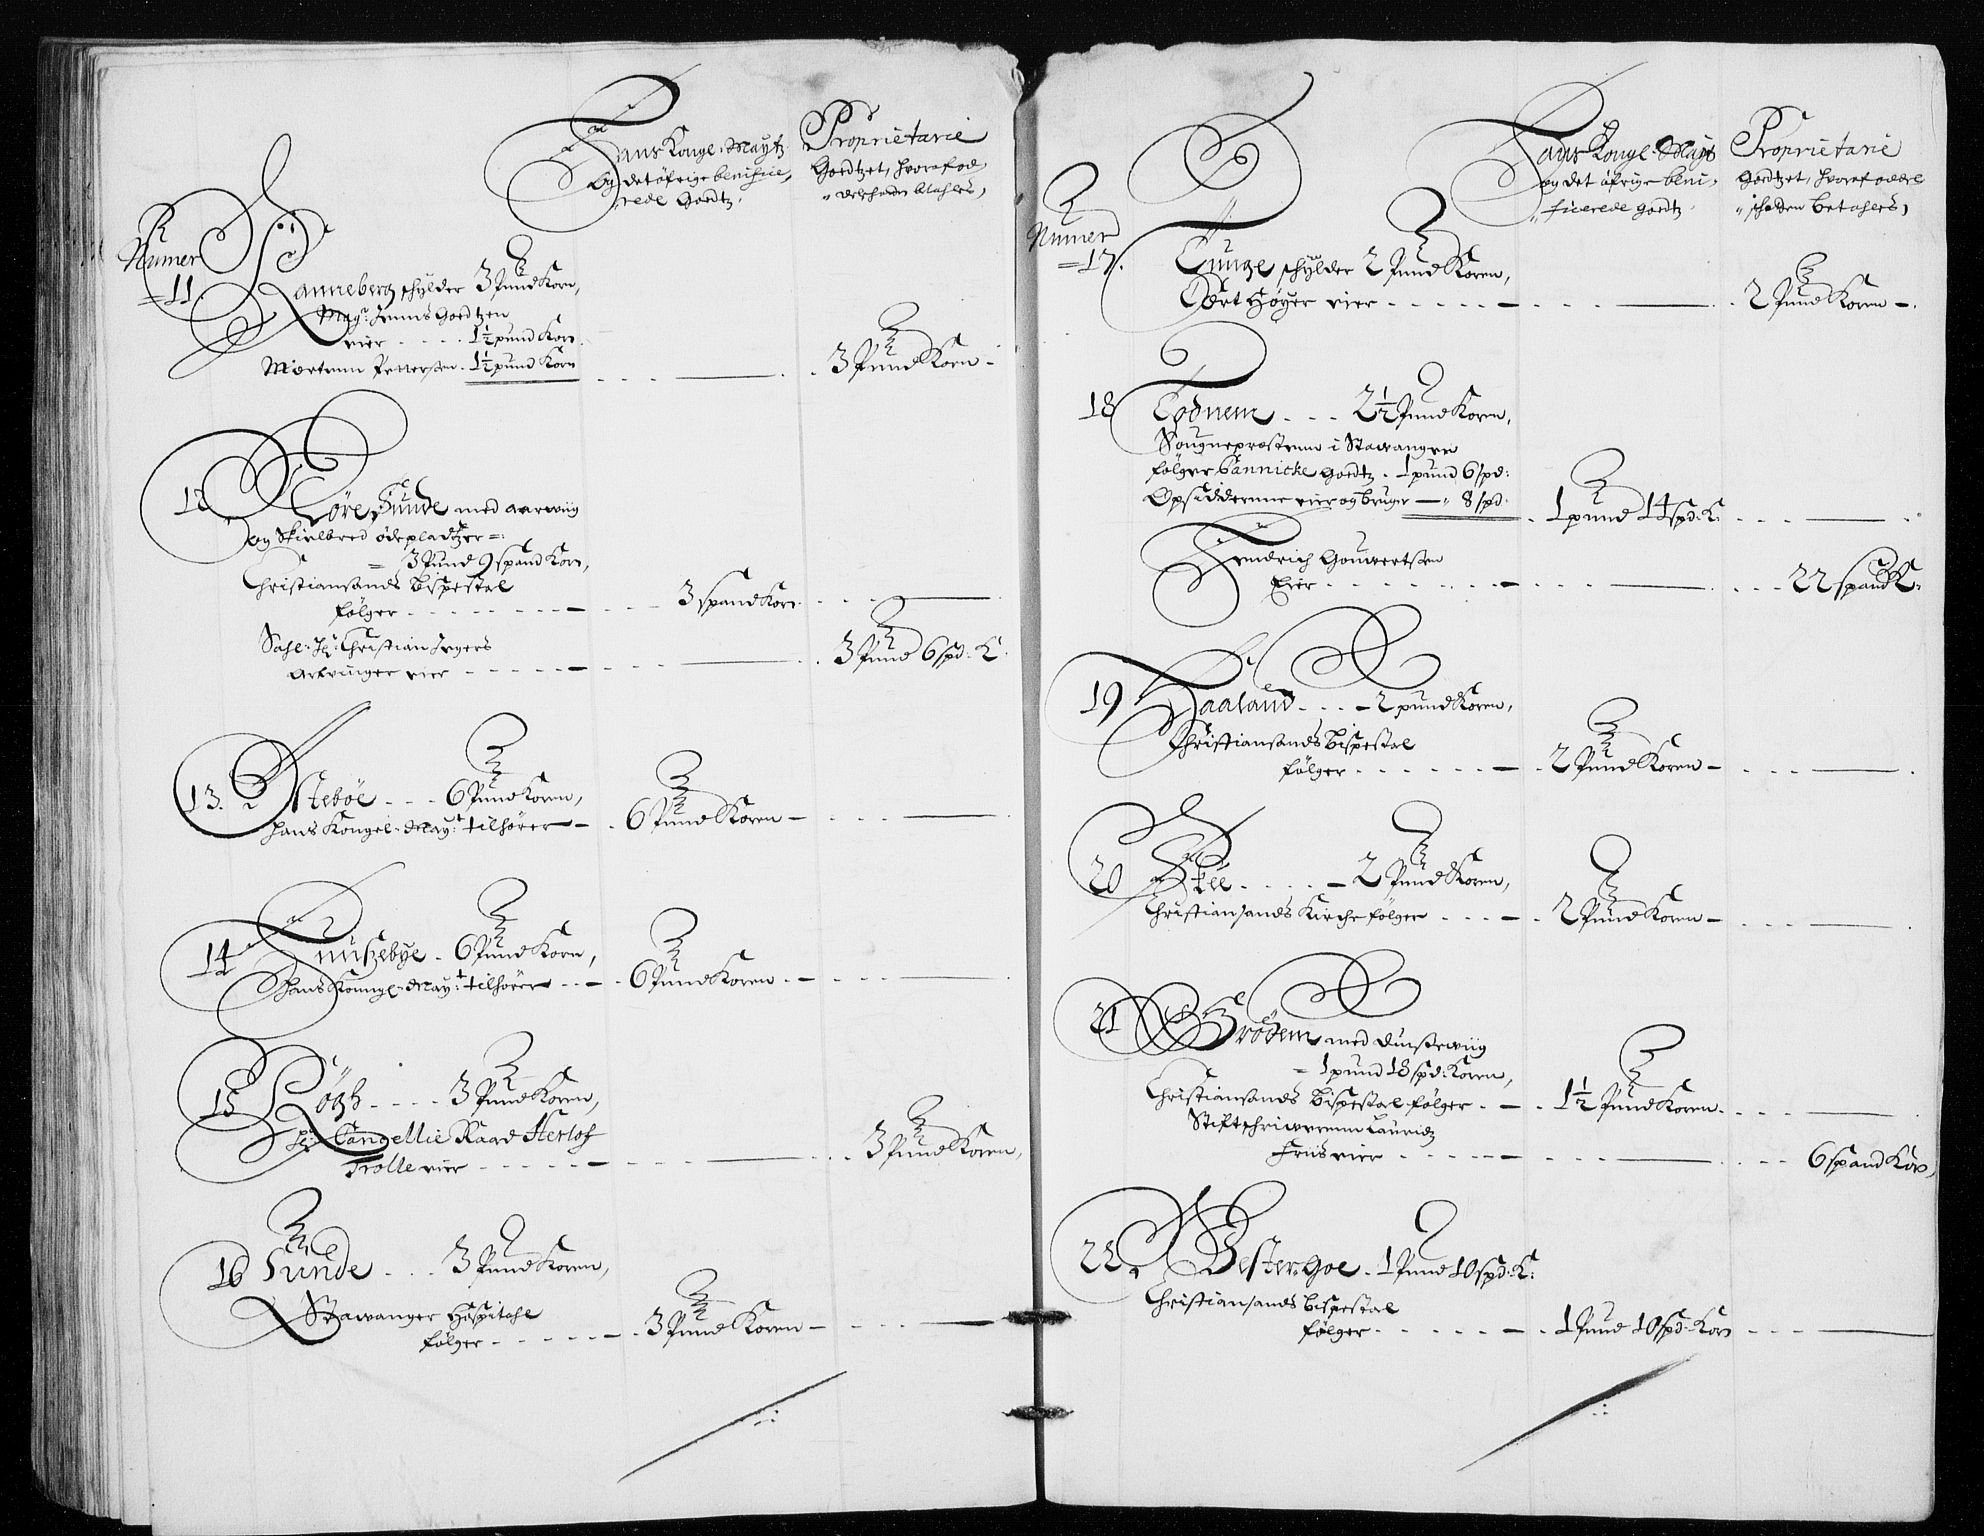 Hans Kongl: Maytz
og det öfrige benifice,
rede Goedtz,
Proprietarie
Goedtzet, hvoraf od
betahles,
Numer
=11
Ranneberg schylder 3 Pund Korn,
Mag: Jenns Goedtzen
eier . . . . . 1½ pund Korn.
Mortenn Pettersen . 1½ pund Korn
3 Pund Korn
12
Göre Sunde med aarwiig
og Skielbred ödepladtzer =:
= 3 Pund 9 spand Korn,
Christiansands Bispestol
fölger
3 spand Korn
Sahl: Hr: Christian Jegers
Arfvinger eier
3 Pund 6 spd: K:
13.
Østeböe . . . 6 Pund Koren,
Hans Kongel: May:t tilhörer
6 Pund Koren
14
Huusebye . 6 Pund Korn,
Hans Kongl: May:t tilhörer
6 Pund Koren
15
Rögh . . . . 3 Pund Koren,
Hr: Cangellie Raad Herlof
Trolle eier
3 Pund Koren,
16 Sunde . . . 3 Pund Koren,
Stawanger Hospitahl
fölger
3 Pund Koren
Hans Kongl: Mayt
og det öfrige beni,
ficerede goedtz
Proprietarie
Goedtzet, hvoraf odell
schatten betahles,
Numer
=17.
Tunge schylder 2 Pund Koren,
Cort Höyer eier
2 Pund Koren
18 Tödnem . . . 2½ Pund Koren,
Sougnepræstenn i Stawanger
fölger Cannicke goedtz . 1 pund 6 spd:
Opsidderenne eier og bruger — 8 spd:
1 pund 14 spd: K:
Hendrich Gouwertsen
Eier
22 spand K:
19 Haaland . . . 2 pund Koren,
Christiansands Bispestol
fölger
2 Pund Koren
20 Skee . . . . 2 Pund Koren,
Christiansands Kirche fölger
2 Pund Koren
21 Grödem med Dusewiig
= 1 pund 18 spd: Koren,
Christiansands Bispestol fölger
1½ Pund Koren
Stiftschriwerenn Lauridz
Friis eier
6 spand Korn,
22. Vestergoe . 1 Pund 10 spd: K:
Christiansands Bispestol
fölger
1 Pund 10 spd: Korn